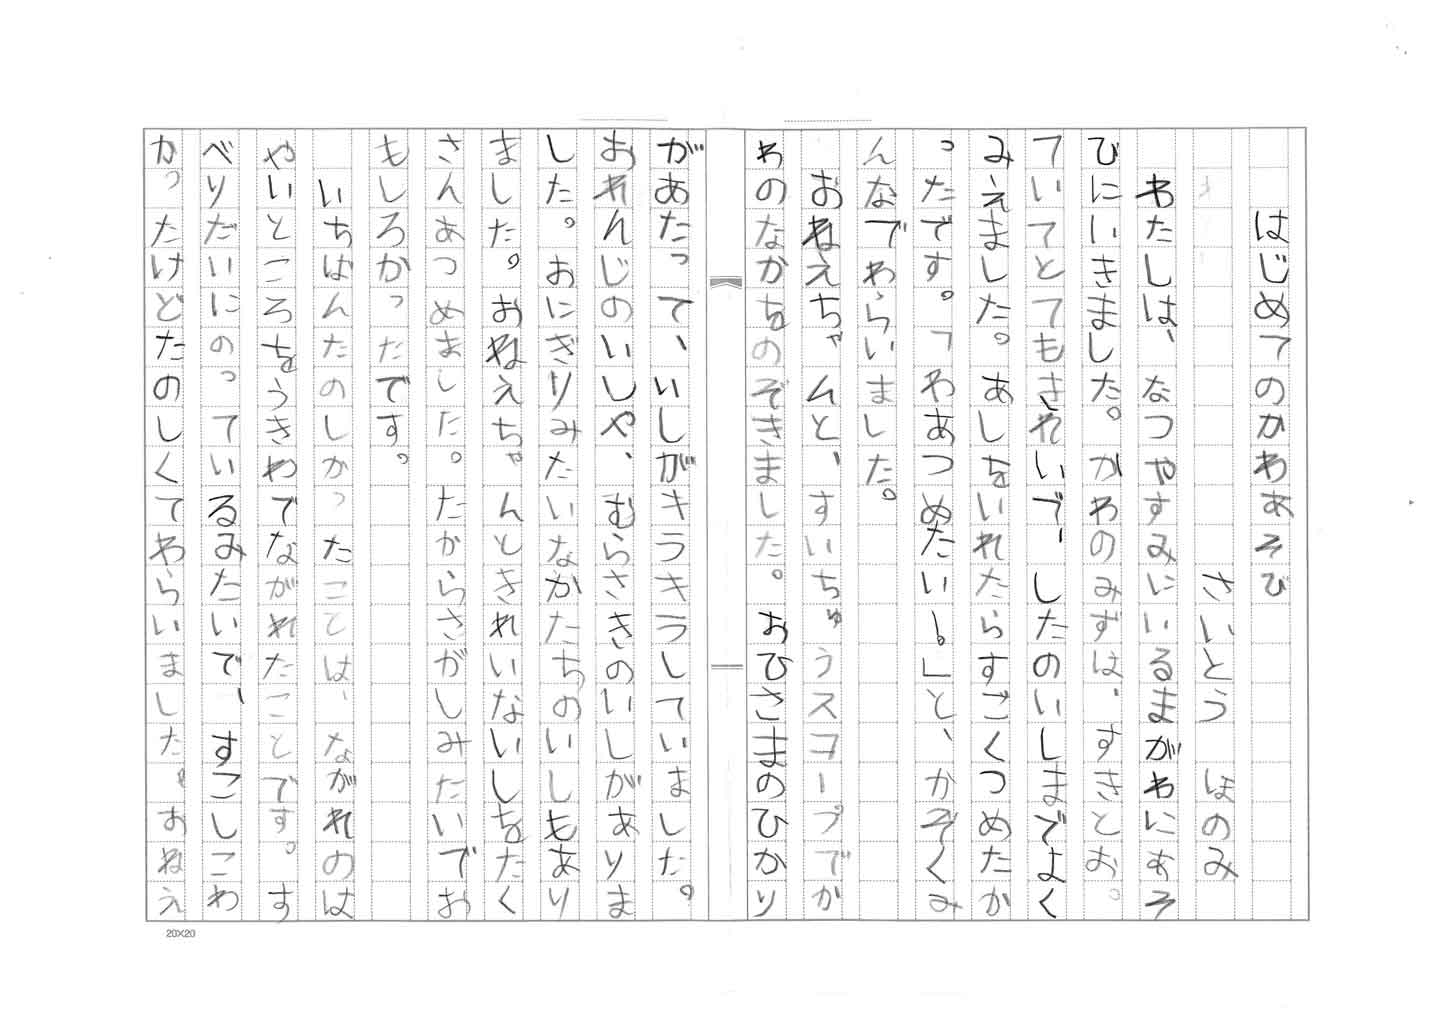 はじめてのかわあそび
さいとう ほのみ
わたしは、なつやすみにいるまがわにあそ
びにいきました。かわのみずは、すきとお。
ていてとてもきれいで、したのいしまでよく
みえました。あしをいれたらすごくつめたか
ったです。「わあつめたい！」と、かぞくみ
んなでわらいました。
おねえちゃんと、すいちゅうスコープでか
わのなかをのぞきました。おひさまのひかり
があたって、いしがキラキラしていました。
おれんじのいしや、むらさきのいしがありま
した。おにぎりみたいなかたちのいしもあり
ました。おねえちゃんときれいないしをたく
さんあつめました。たからさがしみたいでお
もしろかったです。
いちばんたのしかったことは、ながれのは
やいところをうきわでながれたことです。す
べりだいにのっているみたいで、すこしこわ
かったけどたのしくてわらいました。おねえ
20×20